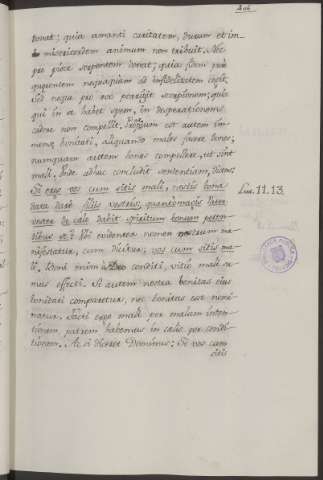 donat; quia amanti caritatem, durum et im-
misericordem animum non tribuit. Nec
pro pisce serpentem donat; quia fidem
infidelitatem
Sed neque pro ovo porrigit scorpionem; quia
qui in eo habet spem, in desperationem
cadere non compellit. Proprium est autem im-
mensæ bonitati, aliquando malis facere bonos;
numquam autem bonos compellere, ut sint
mali. Unde adhuc concludit sententiam, dicens:
Si ergo vos cum sitis mali, nostis bona
data dare filiis vestris, quanto magis Pater
vester de cælo dabit spiritum bonum peten-
tibus se? Ubi evidenter nomen nostrum ma-
nifestatur, cum dicitur; vos cum sitis ma-
li. Boni enim a Deo conditi, vitio mali su-
mus effecti. Si autem nostra bonitas ejus
bonitati comparetur, nec bonitas est nomi-
natur. Facti ergo mali per malam inten-
tionem, patrem habemus in cœlis per condi-
tionem. Ac si diceret Dominus: Si vos cum
sitis
Luc. 11.13.